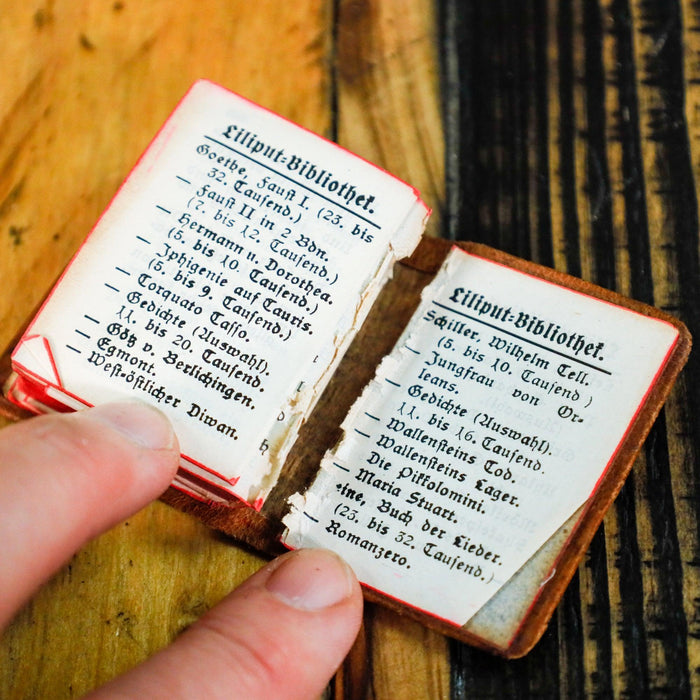 Liliput-Bibliothek.
Goethe, Faust I. (23. bis
32. Tausend.)
— Faust II in 2 Bdn.
(7. bis 12. Tausend.)
— Hermann u. Dorothea.
(5. bis 10. Tausend.)
— Iphigenie auf Tauris.
(5. bis 9. Tausend.)
— Torquato Tasso.
— Gedichte (Auswahl).
11. bis 20. Tausend.
— Götz v. Berlichingen.
— Egmont.
— West-östlicher Diwan.
Liliput-Bibliothek.
Schiller, Wilhelm Tell.
(5. bis 10. Tausend)
— Jungfrau von Or-
leans.
— Gedichte (Auswahl).
11. bis 16. Tausend.
— Wallensteins Tod.
— Wallensteins Lager.
— Die Pikkolomini.
— Maria Stuart.
eine, Buch der Lieder.
(23. bis 32. Tausend.)
— Romanzero.